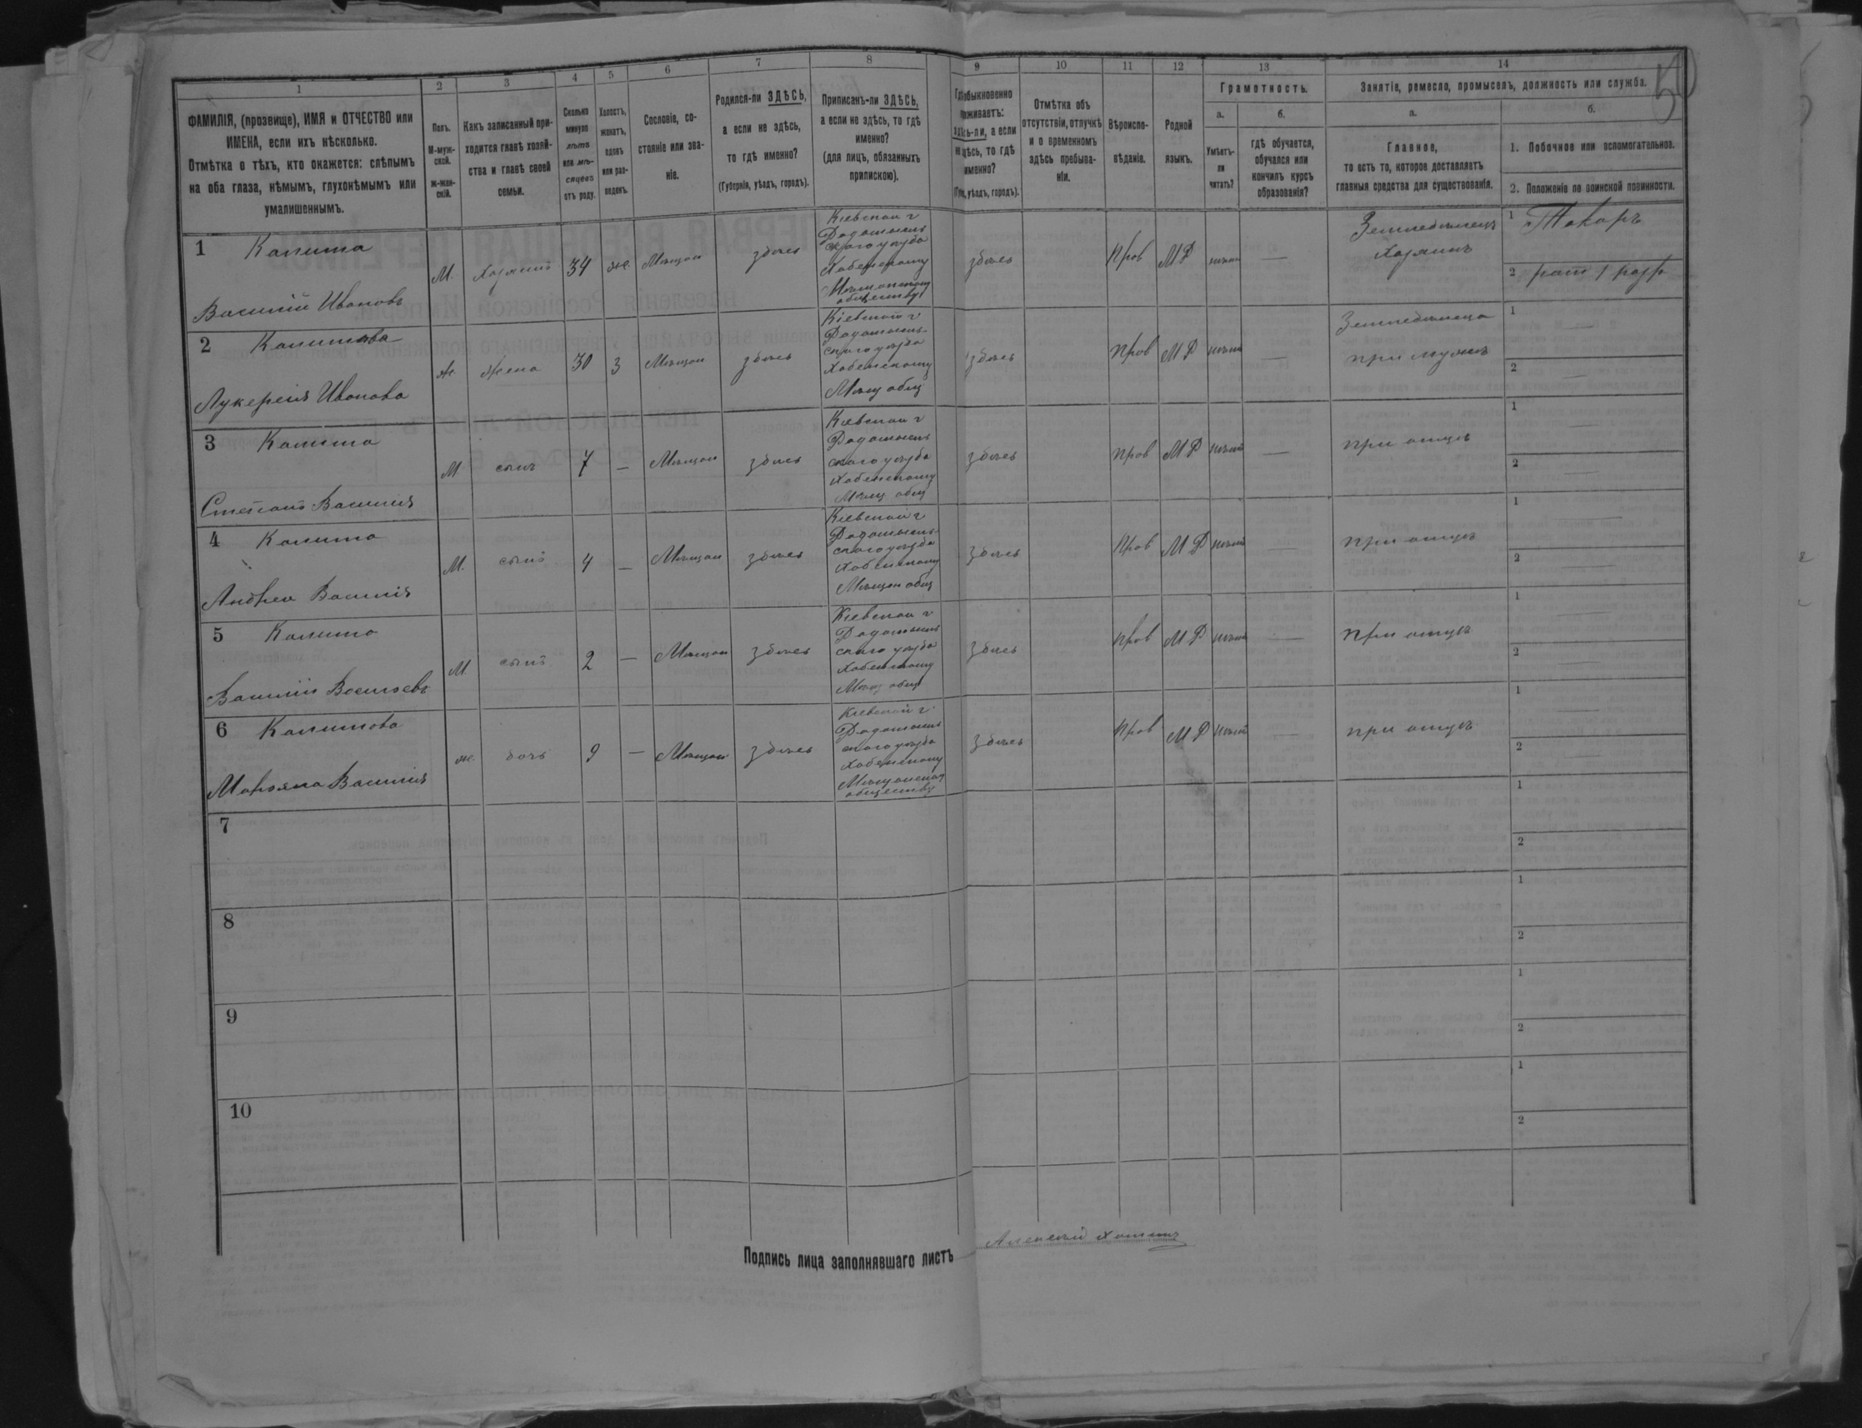 50
1
2
3
4
5
6
7
8
9
10
11
12
13
14
ФАМИЛІЯ, (прозвище), ИМЯ и ОТЧЕСТВО или
ИМЕНА, если ихъ нѣсколько.
Отмѣтка о тѣхъ, кто окажется: слѣпымъ
на оба глаза, нѣмымъ, глухонѣмымъ или
умалишеннымъ.
Полъ.
М-муж-
ской.
Ж-жен-
скій.
Какъ записанный при-
ходится главѣ хозяй-
ства и главѣ своей
семьи.
Сколько
минуло
лѣтъ
или мѣ-
сяцевъ
отъ роду.
Холостъ,
женатъ,
вдовъ
или раз-
веденъ.
Сословіе, со-
стояніе или зва-
ніе.
Родился-ли ЗДѢСЬ,
а если не здѣсь,
то гдѣ именно?
(Губернія, уѣздъ, городъ).
Приписанъ-ли ЗДѢСЬ,
а если не здѣсь, то гдѣ
именно?
(для лицъ, обязанныхъ
припискою).
обыкновенно
проживаетъ:
здѣсь-ли, а если
не здѣсь, то гдѣ
именно?
уѣздъ, городъ).
Отмѣтка объ
отсутствіи, отлучкѣ
и о временномъ
здѣсь пребыва-
ніи.
Вѣроиспо-
вѣданіе.
Родной
языкъ.
Грамотность.
а.
Умѣетъ-
ли
читать?
б.
гдѣ обучается,
обучался или
кончилъ курсъ
образованія?
Занятіе, ремесло, промыселъ, должность или служба.
а.
Главное,
то есть то, которое доставляетъ
главныя средства для существованія.
б.
1. Побочное или вспомогательное.
2. Положеніе по воинской повинности.
1 Калита
Василій Ивановъ
М. Хозяинъ 34 ж Мѣщан здѣсь
Кіевской г
Радомысль
скаго уѣзда
Хабенскому
Мѣщанскому
обществу
здѣсь Прав МР
Земледѣлецъ
Хозяинъ
1 Токарь
2 рат 1 разр
2 Калитова
Лукерія Иванова
ж жена 30 З Мѣщан здѣсь
Кіевской г
Радомысль
скаго уѣзда
Хабенскому
Мѣщ общ
здѣсь Прав МР —
Земледѣлица
при мужѣ
1 —
2 —
3 Калита
Степанъ Василія
М сынъ 7 — Мѣщан здѣсь
Кіевской г
Радомысль
скаго уѣзда
Хабенскому
Мѣщ общ
здѣсь Прав МР — при отцѣ
1 —
2 —
4 Калита
Андрей Василія
М. сынъ 4 — Мѣщан здѣсь
Кіевской г
Радомысль
скаго уѣзда
Хабенскому
Мѣщан общ
здѣсь Прав МР — при отцѣ
1 —
2 —
5 Калита
Василій Васильевъ
М сынъ 2 — Мѣщан здѣсь
Кіевской г
Радомысль
скаго уѣзда
Хабенскому
Мѣщ общ
здѣсь Прав МР — при отцѣ
1 —
2 —
6 Калитова
Марьяна Василія
ж дочь 9 — Мѣщан здѣсь
Кіевской г
Радомысль
скаго уѣзда
Хабенскому
Мѣщанскому
обществу
здѣсь Прав МР — при отцѣ
1 —
2
7
1
2
8
1
2
9
1
2
10
1
2
Подпись лица заполнявшаго листъ
Алексѣй